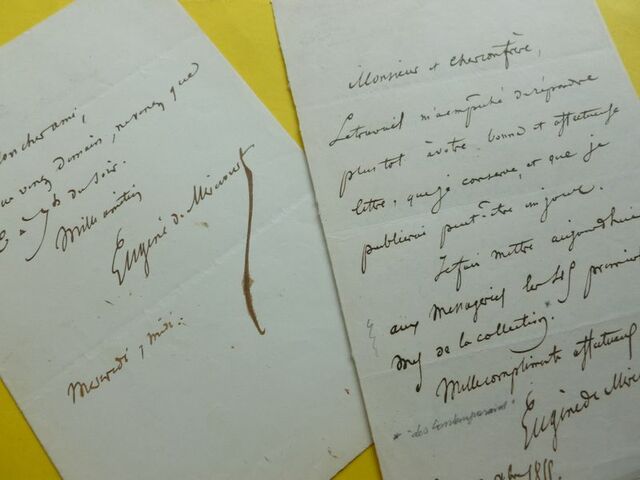 mon cher ami,
venez demain, ne venez que
du soir.
Mille amitiés
Eugène de Mirecourt
Mercredi, midi.
Monsieur et cher confrère,
Le travail m'a empêché de répondre
plus tôt à votre bonne et affectueuse
lettre, que je conserve, et que je
publierai peut-être un jour.
Je fais mettre aujourd'hui
aux messageries les premiers
de la collection.*
Mille compliments affectueux
* "des Contemporains"
Eugène de Mirec